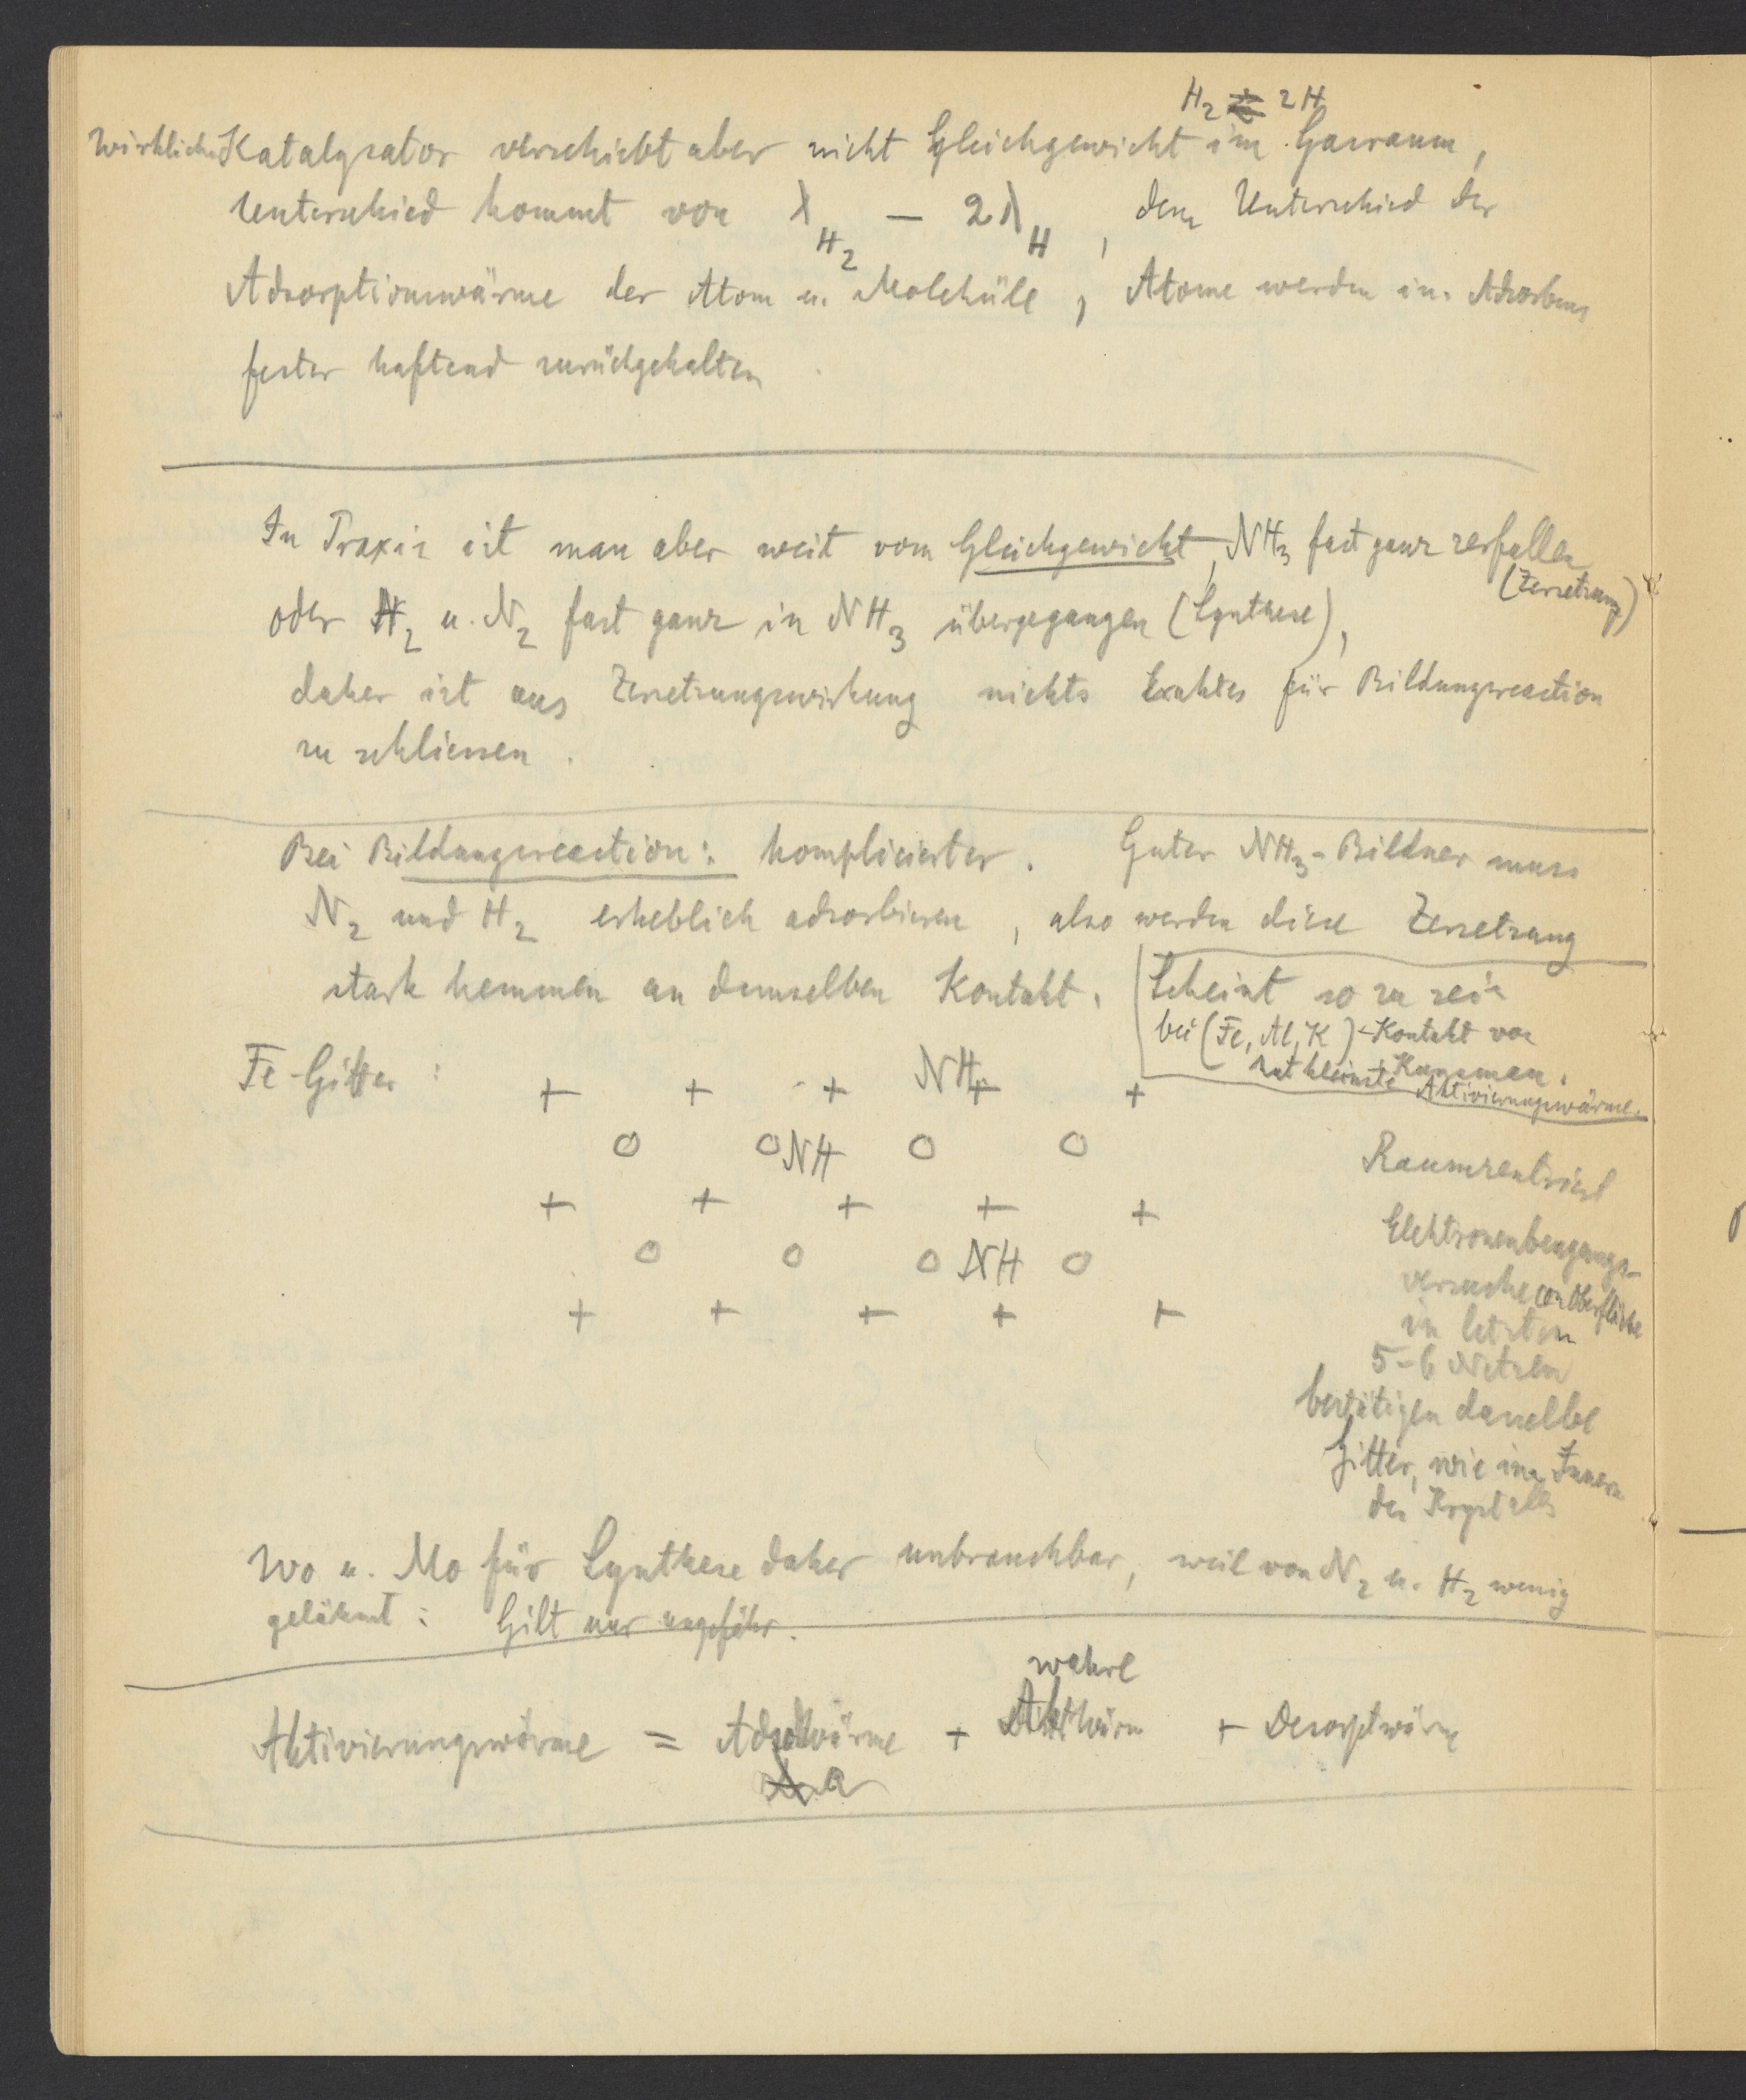 H₂ ⇌ 2H
Wirklicher Katalysator verschiebt aber nicht Gleichgewicht im Gasraum,
Unterschied kommt von λ_H₂ – 2λ_H, dem Unterschied der
Adsorptionswärme der Atom u. Moleküle, Atome werden im Adsorbens
fester haftend zurückgehalten
In Praxis ist man aber weit vom Gleichgewicht, NH₃ fast ganz zerfallen
(Zersetzung)
oder H₂ u. N₂ fast ganz in NH₃ übergegangen (Synthese),
daher ist aus Zersetzungswirkung nichts Exaktes für Bildungsreaction
zu schliessen.
Bei Bildungsreaction: komplicierter. Guter NH₃-Bildner muss
N₂ und H₂ erheblich adsorbieren, also werden diese Zersetzung
stark hemmen an demselben Kontakt.
Scheint so zu sein
bei (Fe, Al, K)-Kontakt von
Kunsman.
hat kleinste Aktivierungswärme.
Fe-Gitter:
+ + + NH₃ + +
o o NH o o
+ + + + +
o o o NH o
+ + + + +
Raumzentriert
Elektronenbeugungs-
versuche an Oberfläche
in letzten
5-6 Netzen
bestätigen dasselbe
Gitter, wie im Innern
des Krystalls
Wo u. Mo für Synthese daher unbrauchbar, weil von N₂ u. H₂ wenig
gelähmt: Gilt nur ungefähr.
wahre
Aktivierungswärme = Adsorbwärme + Aktwärm + Desorptwärme